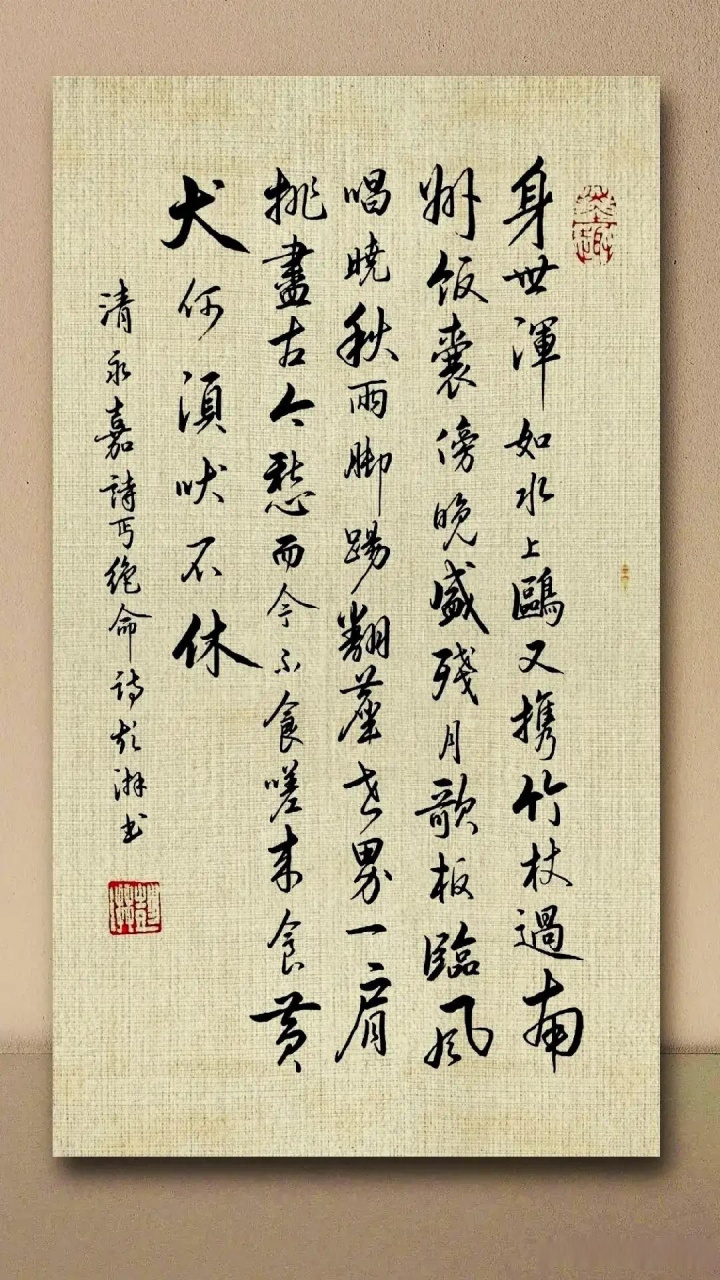 身世渾如水上鷗又携竹杖過南
州飯囊傍晚盛殘月歌板臨風
唱曉秋兩脚踢翻塵世界一肩
挑盡古今愁而今不食嗟来食黄
犬何須吠不休
清永嘉詩丐絶命詩 书